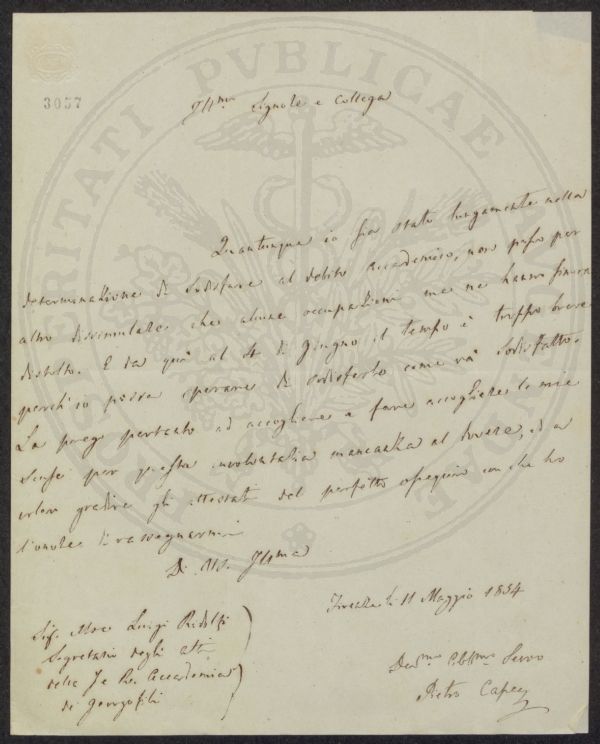 3057
Ill.mo Signore e Collega
Quantunque io sia stato lungamente nella
determinazione di sodisfare al debito Accademico, non posso per
altro dissimulare che alcune occupazioni me ne hanno finora
distolto. E da quì al 4 di Giugno il tempo è troppo breve
perch'io possa sperare di sodisfarlo come và sodisfatto.
La prego pertanto ad accogliere e fare accogliere le mie
scuse per questa involontaria mancanza al dovere, ed a
voler gradire gli attestati del perfetto ossequio con che ho
l'onore di rassegnarmi
Di VS. Ill.ma
li 11 Maggio 1834
Sig. Luigi Ridolfi
Segretario degli Atti
della I e R. Accademia
de' Georgofili
Dev.mo Obb.mo Servo
Pietro Capei